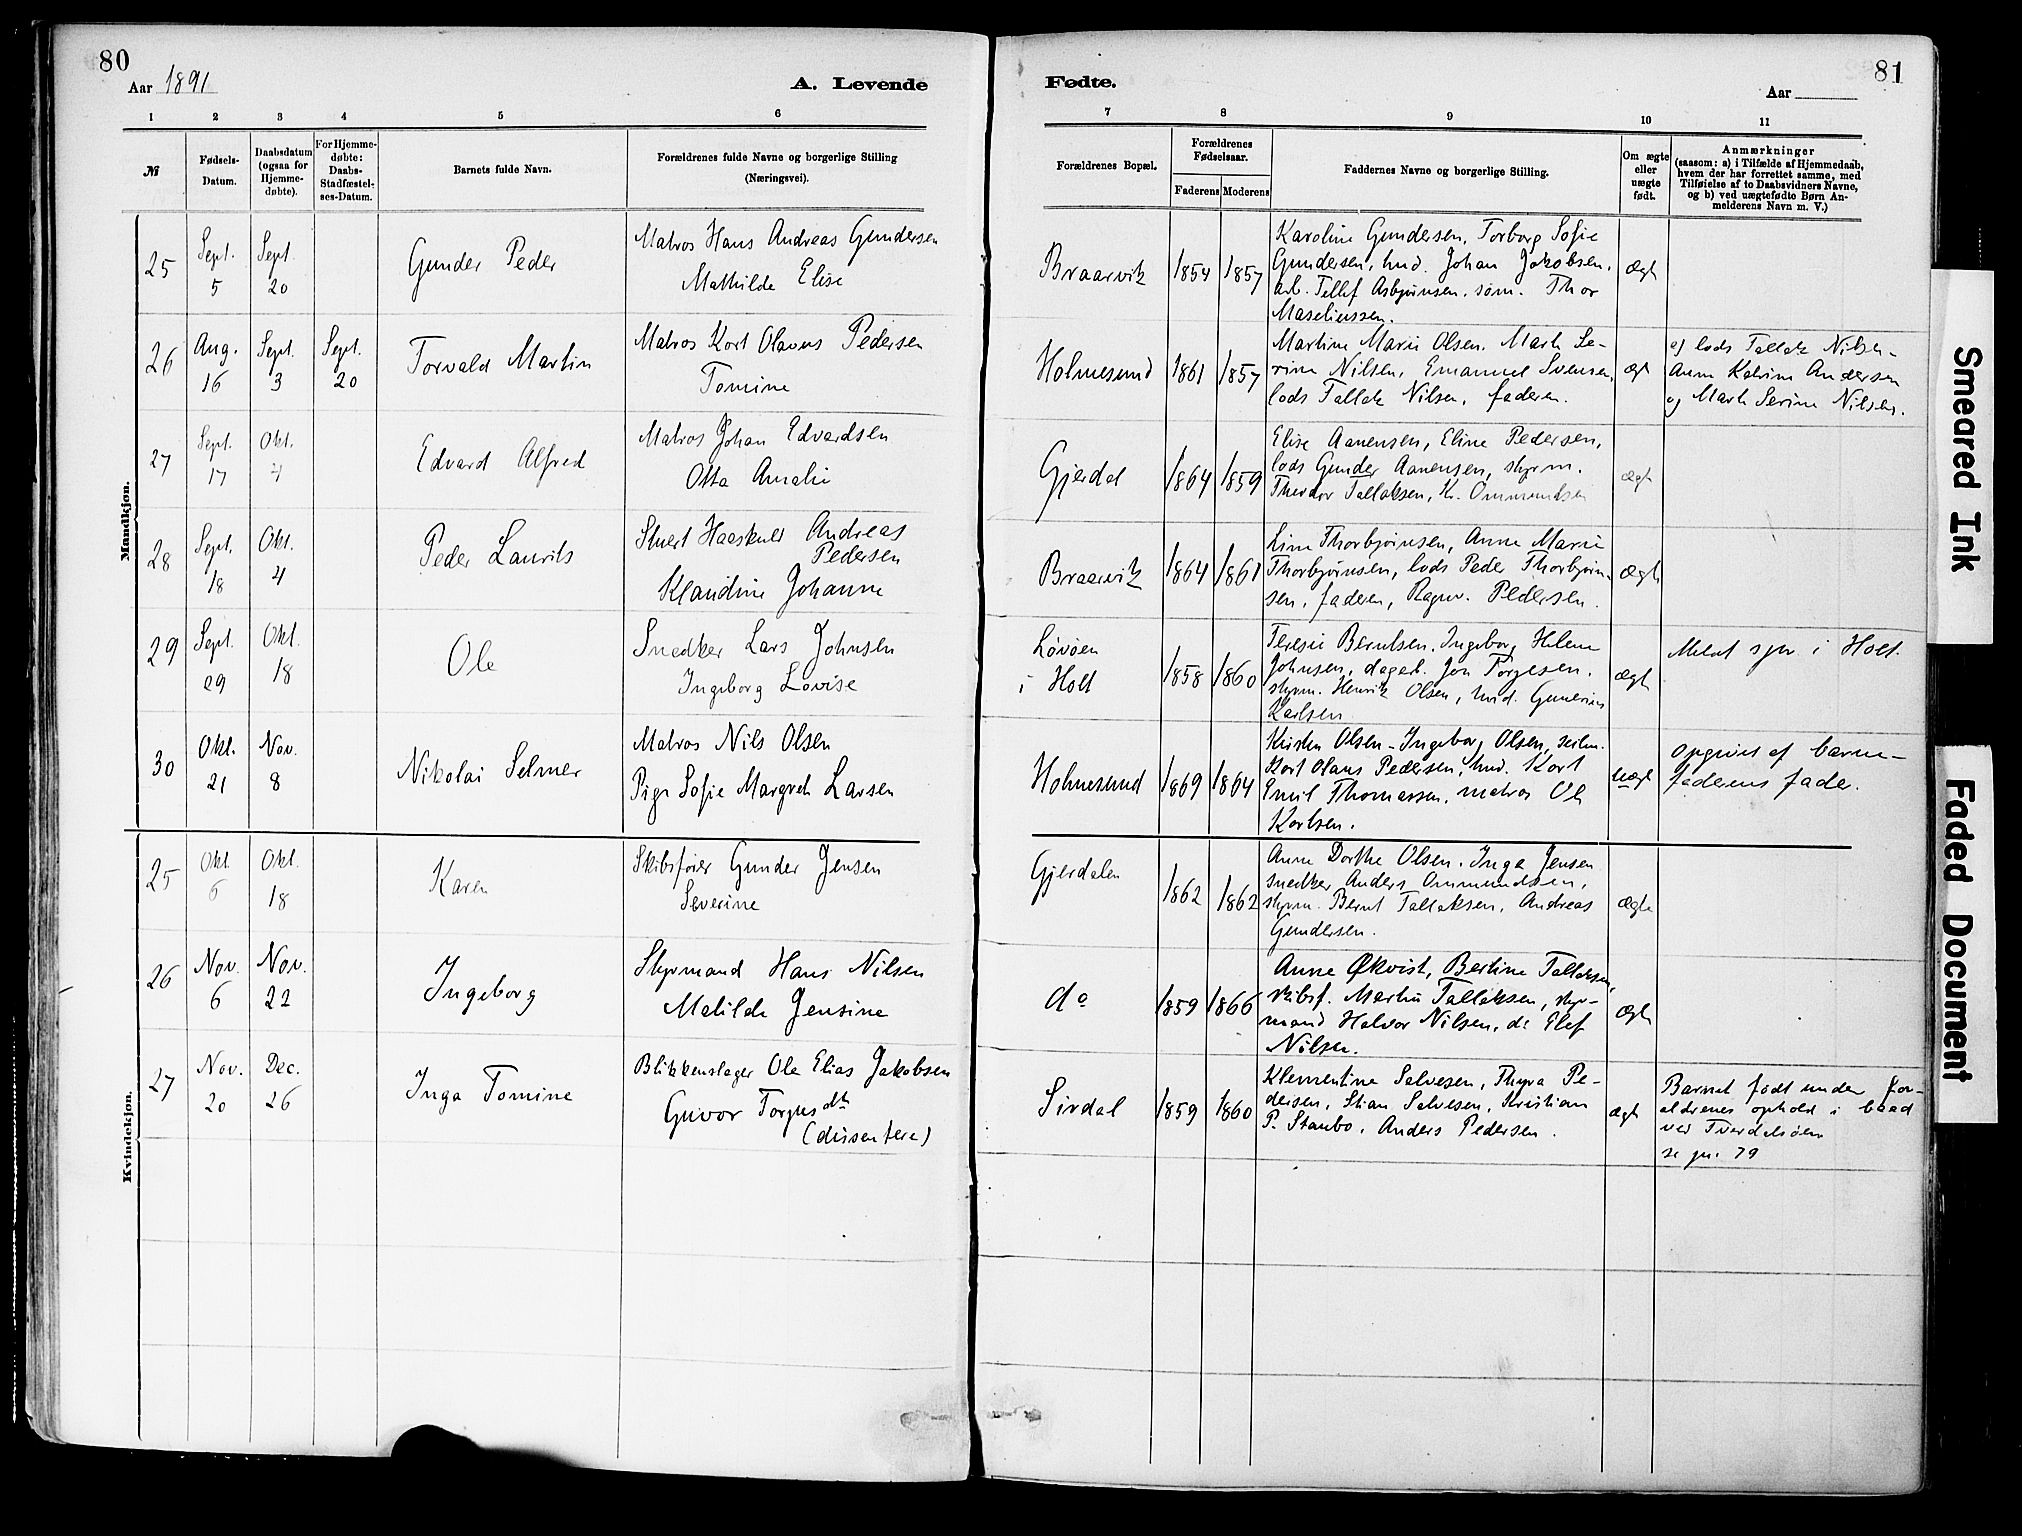 80
Aar 1891
A. Levende
Fødte.
81
Aar
1 2 3 4 5 6 7 8 9 10 11
№
Fødsels-
Datum.
Daabsdatum
(ogsaa for
Hjemme-
døbte).
For Hjemme-
døbte:
Daabs-
Stadfæstel-
ses-Datum.
Barnets fulde Navn.
Forældrenes fulde Navne og borgerlige Stilling
(Næringsvei).
Forældrenes Bopæl.
Forældrenes
Fødselsaar.
Faderens Moderens
Faddernes Navne og borgerlige Stilling.
Om ægte
eller
uægte
født.
Anmærkninger
(saasom: a) i Tilfælde af Hjemmedaab,
hvem der har forrettet samme, med
Tilføielse af to Daabsvidners Navne,
og b) ved uægtefødte Børn An-
melderens Navn m. V.)
Mandkjøn.
25
Sept.
5
Sept.
20
Gunder Peder
Matros Hans Andreas Gundersen
Mathilde Elise
Braarvik
1854
1857
Karoline Gundersen, Torborg Sofie
Gundersen, hud. Johan Jakobsen,
arb. Tellef Asbjørnsen, søm. Thor
Maseliussen.
ægt
26
Aug.
16
Sept.
3
Sept.
20
Torvald Martin
Matros Kort Olavus Pedersen
Tomine
Holmesund
1861
1857
Martine Marie Olsen, Marth Se-
rine Nilsen, Emanuel Svensen,
lods Tallak Nilsen, faderen.
ægt
af lods Tallak Nilsen-
Anne Katrine Andersen
og Marth Serine Nilsen.
27
Sept.
17
Okt.
4
Edvard Alfred
Matros Johan Edvardsen
Otta Amalie
Gjerdal
1864
1859
Elise Aanensen, Eline Pedersen,
lods Gunder Aanensen, styrm.
Theodor Tallaksen, Kr. Ommundsen
ægt
28
Sept.
18
Okt.
4
Peder Laurits
Stuert Andreas
Pedersen
Klaudine Johanne
Braarvik
1864
1861
Line Thorbjørnsen, Anne Marie
Thorbjørnsen, lods Peder Thorbjørn-
sen, faderen, Ragnv. Pedersen.
ægt
29
Sept.
29
Okt.
18
Ole
Snedker Lars Johnsen
Ingeborg Lovise
Løvøen
i Holt
1858
1860
Teresie Berntsen, Ingeborg Helene
Johnsen, dagarb. Jon Torjesen,
styrm. Henrik Olsen, hud. Gunerius
Karlsen
ægt
Meldt spr i Holt.
30
Okt.
21
Nov.
8
Nikolai Selmer
Matros Nils Olsen
Pige Sofie Margreth Larsen
Holmesund
1869
1864
Kirsten Olsen - Ingeborg Olsen, seilm.
Kort Olaus Pedersen, hud. Kort
Emil Thomassen, matros Ole
Karlsen.
uægt
opgivet af barne-
faderens fader.
Kvindekjøn.
25
Okt.
6
Okt.
18
Karen
Skibsfører Gunder Jensen
Severine
Gjerdalen
1862
1862
Anne Dorthe Olsen, Inga Jensen
snedker Anders Ommundsen,
styrm. Bernt Tallaksen, Andreas
Gundersen.
ægte
26
Nov.
6
Nov.
22
Ingeborg
Styrmand Hans Nilsen
Matilde Jensine
do
1859
1866
Anne Økvist, Bertine Tallaksen,
skibsf. Martin Tallaksen, styr-
mand Halvor Nilsen, do Elef
Nilsen.
ægt
27
Nov.
20
Dec.
26
Inga Tomine
Blikkenslager Ole Elias Jakobsen
Guvor Torgusdtr
(dissentere)
Sirdal
1859
1860
Klementine Salvesen, Thyra Pe-
dersen, Stian Salvesen, Kristian
P. Staubo, Anders Pedersen.
ægt
Barnet født under for-
ældrenes ophold i baad
ved Tverdalsøen
se pr. 79
Smeared Ink
Faded Document